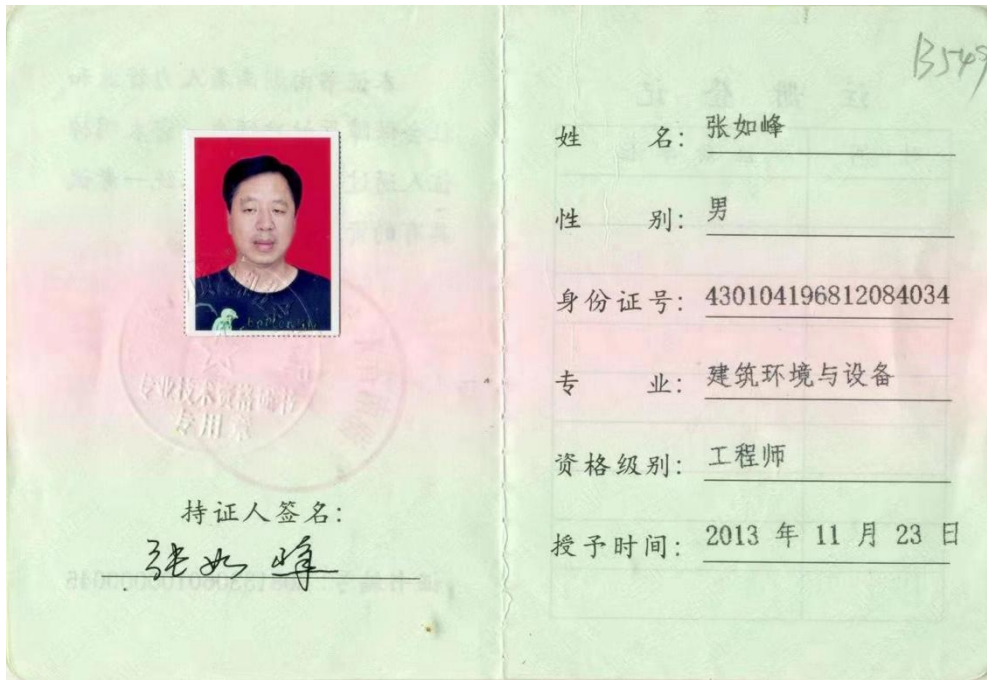 专业技术资格证书
专用章
持证人签名:
张如峰
B549
姓 名: 张如峰
性 别: 男
身份证号: 430104196812084034
专 业: 建筑环境与设备
资格级别: 工程师
授予时间: 2013 年 11 月 23 日